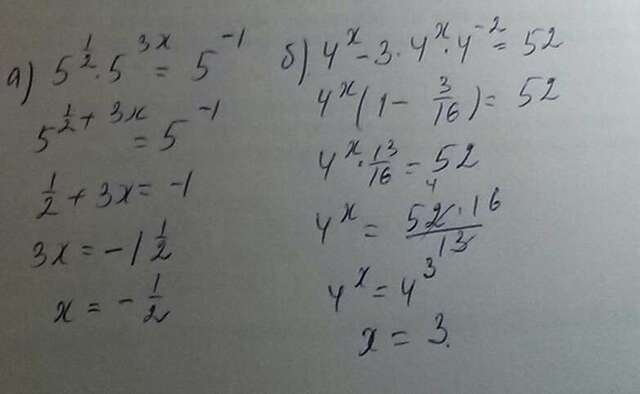 а) 5^{1/2} · 5^{3x} = 5^{-1}
5^{1/2 + 3x} = 5^{-1}
1/2 + 3x = -1
3x = -1 1/2
x = -1/2
б) 4^x - 3 · 4^x · 4^{-2} = 52
4^x (1 - 3/16) = 52
4^x · 13/16 = 52
4
4^x = 52 · 16 / 13
4^x = 4^3
x = 3.